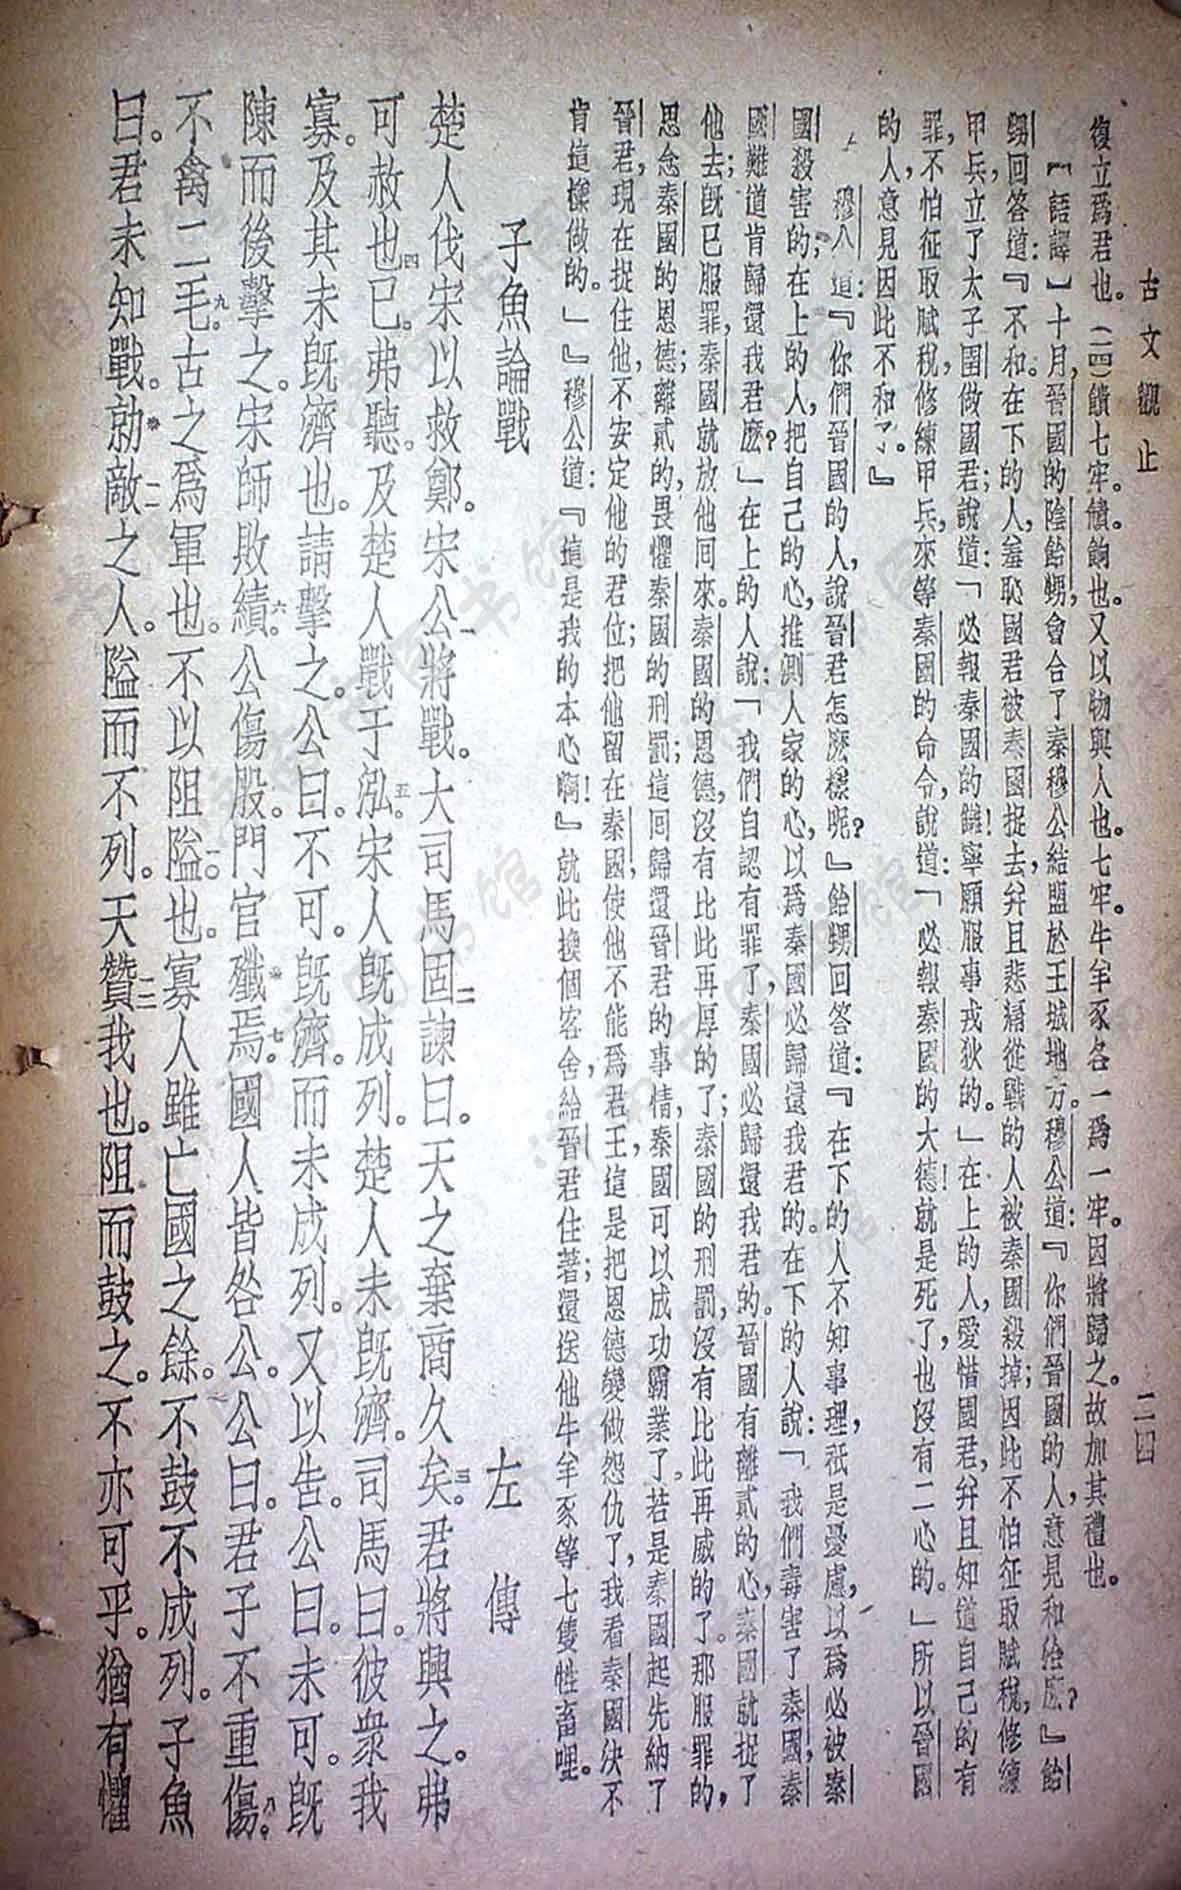 古文觀止
二四
復立爲君也。(二四)饋七牢。饋餉也。又以物與人也。七牢。牛羊豕各一爲一牢。因將歸之。故加其禮也。
【語譯】十月，晉國的陰飴甥，會合了秦穆公結盟於王城地方。穆公道：『你們晉國的人，意見和洽麽？』飴
甥回答道：『不和。在下的人，羞恥國君被秦國捉去，幷且悲痛從戰的人被秦國殺掉；因此不怕征取賦稅，修練
甲兵，立了太子圉做國君；說道：「必報秦國的讎！寧願服事戎狄的。」在上的人，愛惜國君，幷且知道自己的有
罪，不怕征取賦稅，修練甲兵，來等秦國的命令，說道：「必報秦國的大德！就是死了，也沒有二心的。」所以晉國
的人，意見因此不和了。』
穆公道：『你們晉國的人，說晉君怎麽樣呢？』飴甥回答道：『在下的人不知事理，祇是憂慮，以爲必被秦
國殺害的；在上的人，把自己的心，推測人家的心，以爲秦國必歸還我君的。在下的人說：「我們毒害了秦國，秦
國難道肯歸還我君麽？」在上的人說：「我們自認有罪了，秦國必歸還我君的。晉國有離貳的心，秦國就捉了
他去；旣已服罪，秦國就放他回來。秦國的恩德，沒有比此再厚的了；秦國的刑罰，沒有比此再威的了。那服罪的，
思念秦國的恩德；離貳的，畏懼秦國的刑罰；這回歸還晉君的事情，秦國可以成功霸業了。若是秦國起先納了
晉君，現在捉住他，不安定他的君位；把他留在秦國，使他不能爲君王，這是把恩德變做怨仇了，我看秦國決不
肯這樣做的。」』穆公道：『這是我的本心啊！』就此換個客舍，給晉君住著；還送他牛羊豕等七隻牲畜哩。
子魚論戰　左傳
楚人伐宋以救鄭。宋公一將戰。大司馬固二諫曰。天之棄商久矣三。君將興之。弗
可赦也四已。弗聽。及楚人戰于泓五。宋人旣成列。楚人未旣濟。司馬曰。彼衆我
寡。及其未旣濟也。請擊之。公曰。不可。旣濟。而未成列。又以告。公曰。未可。旣
陳而後擊之。宋師敗績六。公傷股。門官殲焉七。國人皆咎公。公曰。君子不重傷八。
不禽二毛九。古之爲軍也。不以阻隘一〇也。寡人雖亡國之餘。不鼓不成列。子魚
曰。君未知戰。勍敵一一之人。隘而不列。天贊一二我也。阻而鼓之。不亦可乎。猶有懼